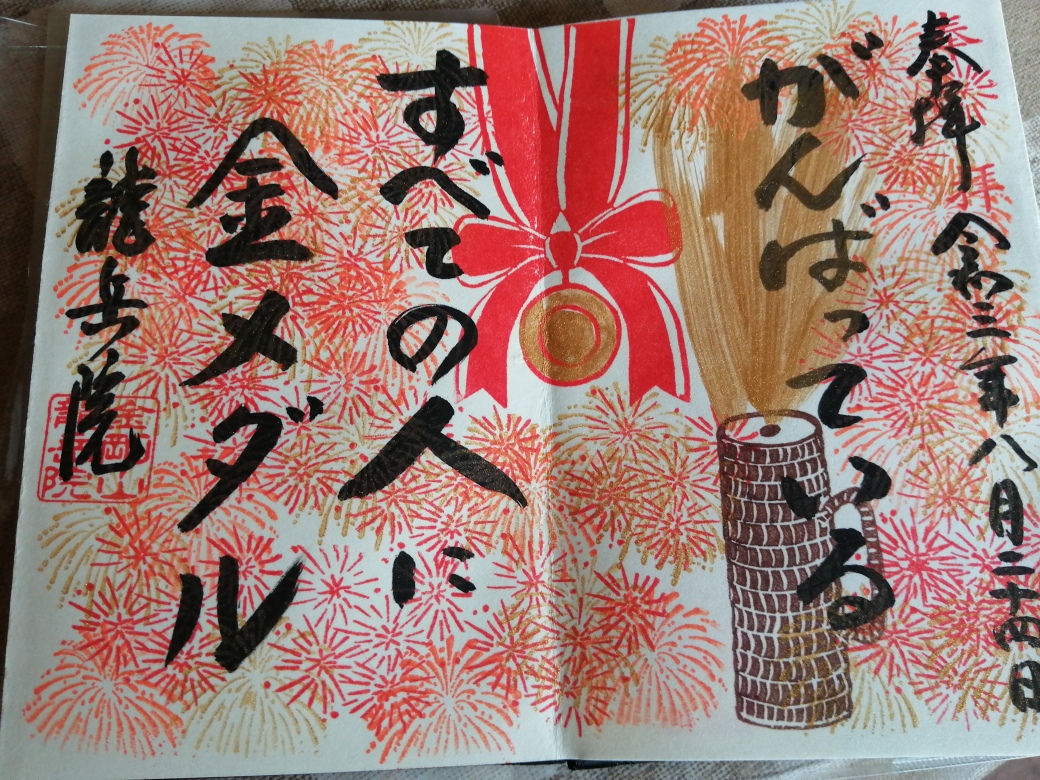 奉拝
令和三年八月二十四日
がんばっている
すべての人に
金メダル
龍岳院